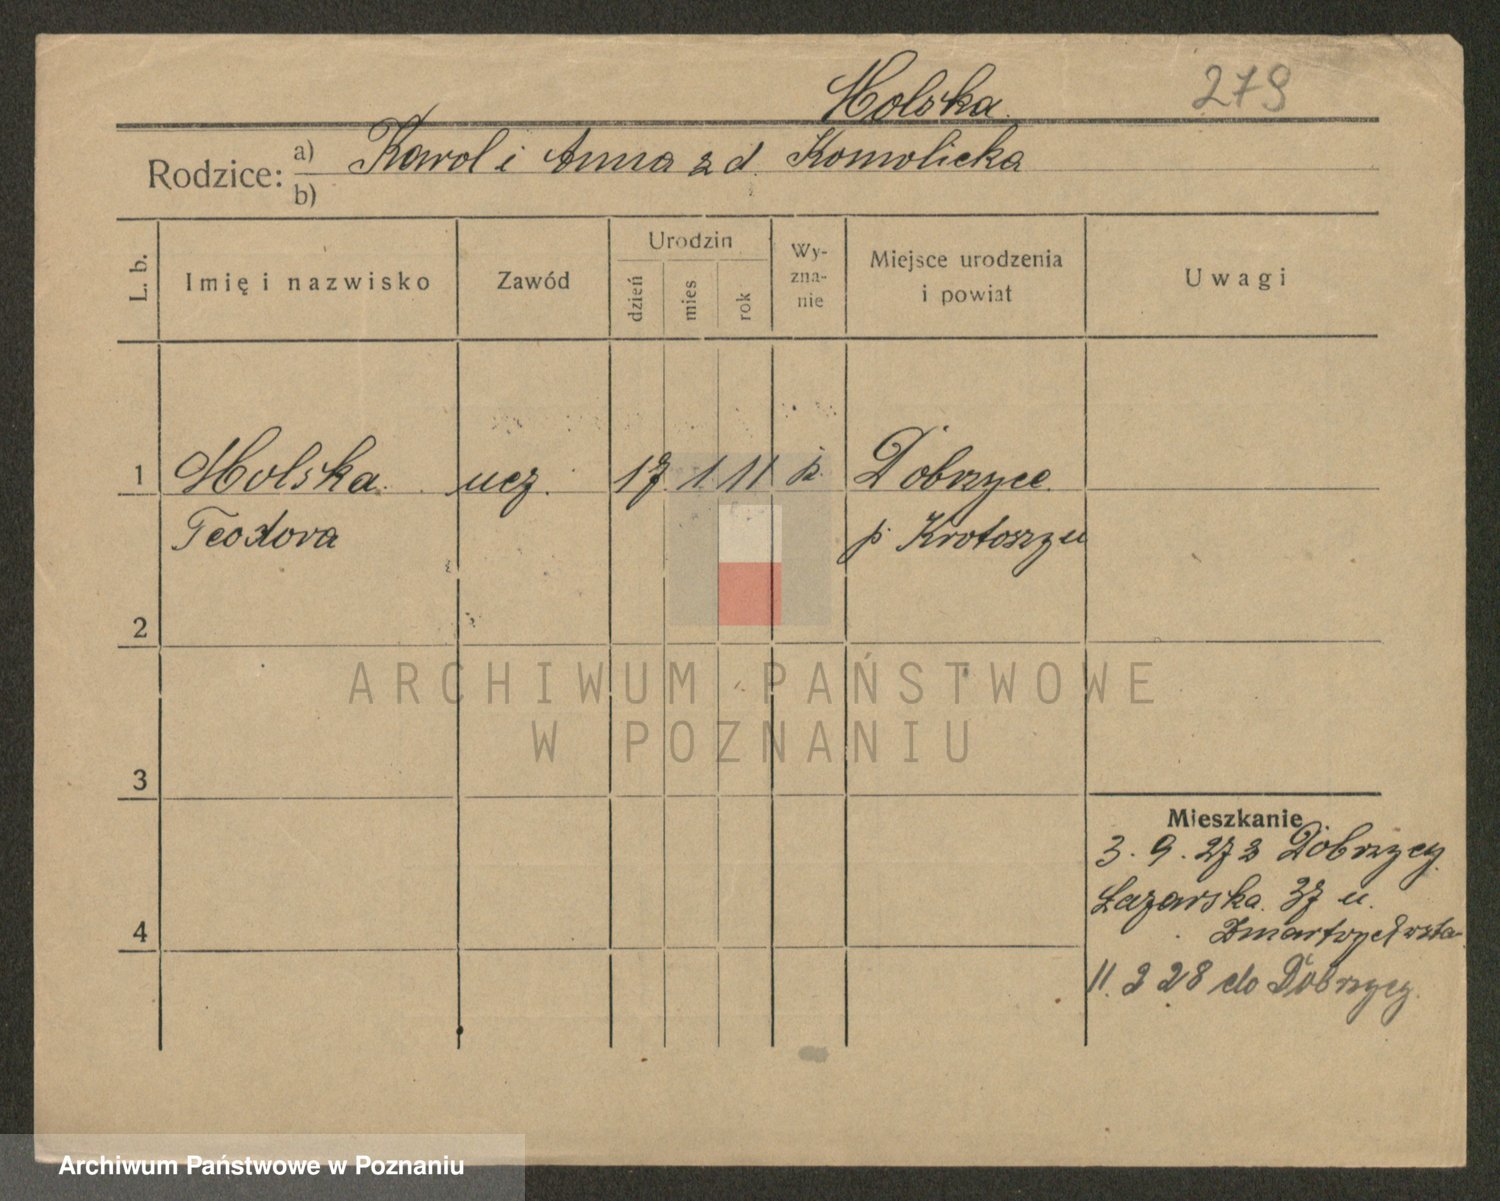 Molska
279
Rodzice:
a) Karol i Anna z d. Komolicka
b)
L. b.
Imię i nazwisko
Zawód
Urodzin
dzień
mies
rok
Wy-
zna-
nie
Miejsce urodzenia
i powiat
Uwagi
1 Molska ucz. 17. 1. 11 k. Dobrzyce
Teodora p. Krotoszyn
2
3
4
ARCHIWUM PAŃSTWOWE
W POZNANIU
Mieszkanie
3. 9. 27 z Dobrzycy
Łazarska 37 u.
Zmartwychwsta
11. 2 28 do Dobrzycy.
Archiwum Państwowe w Poznaniu